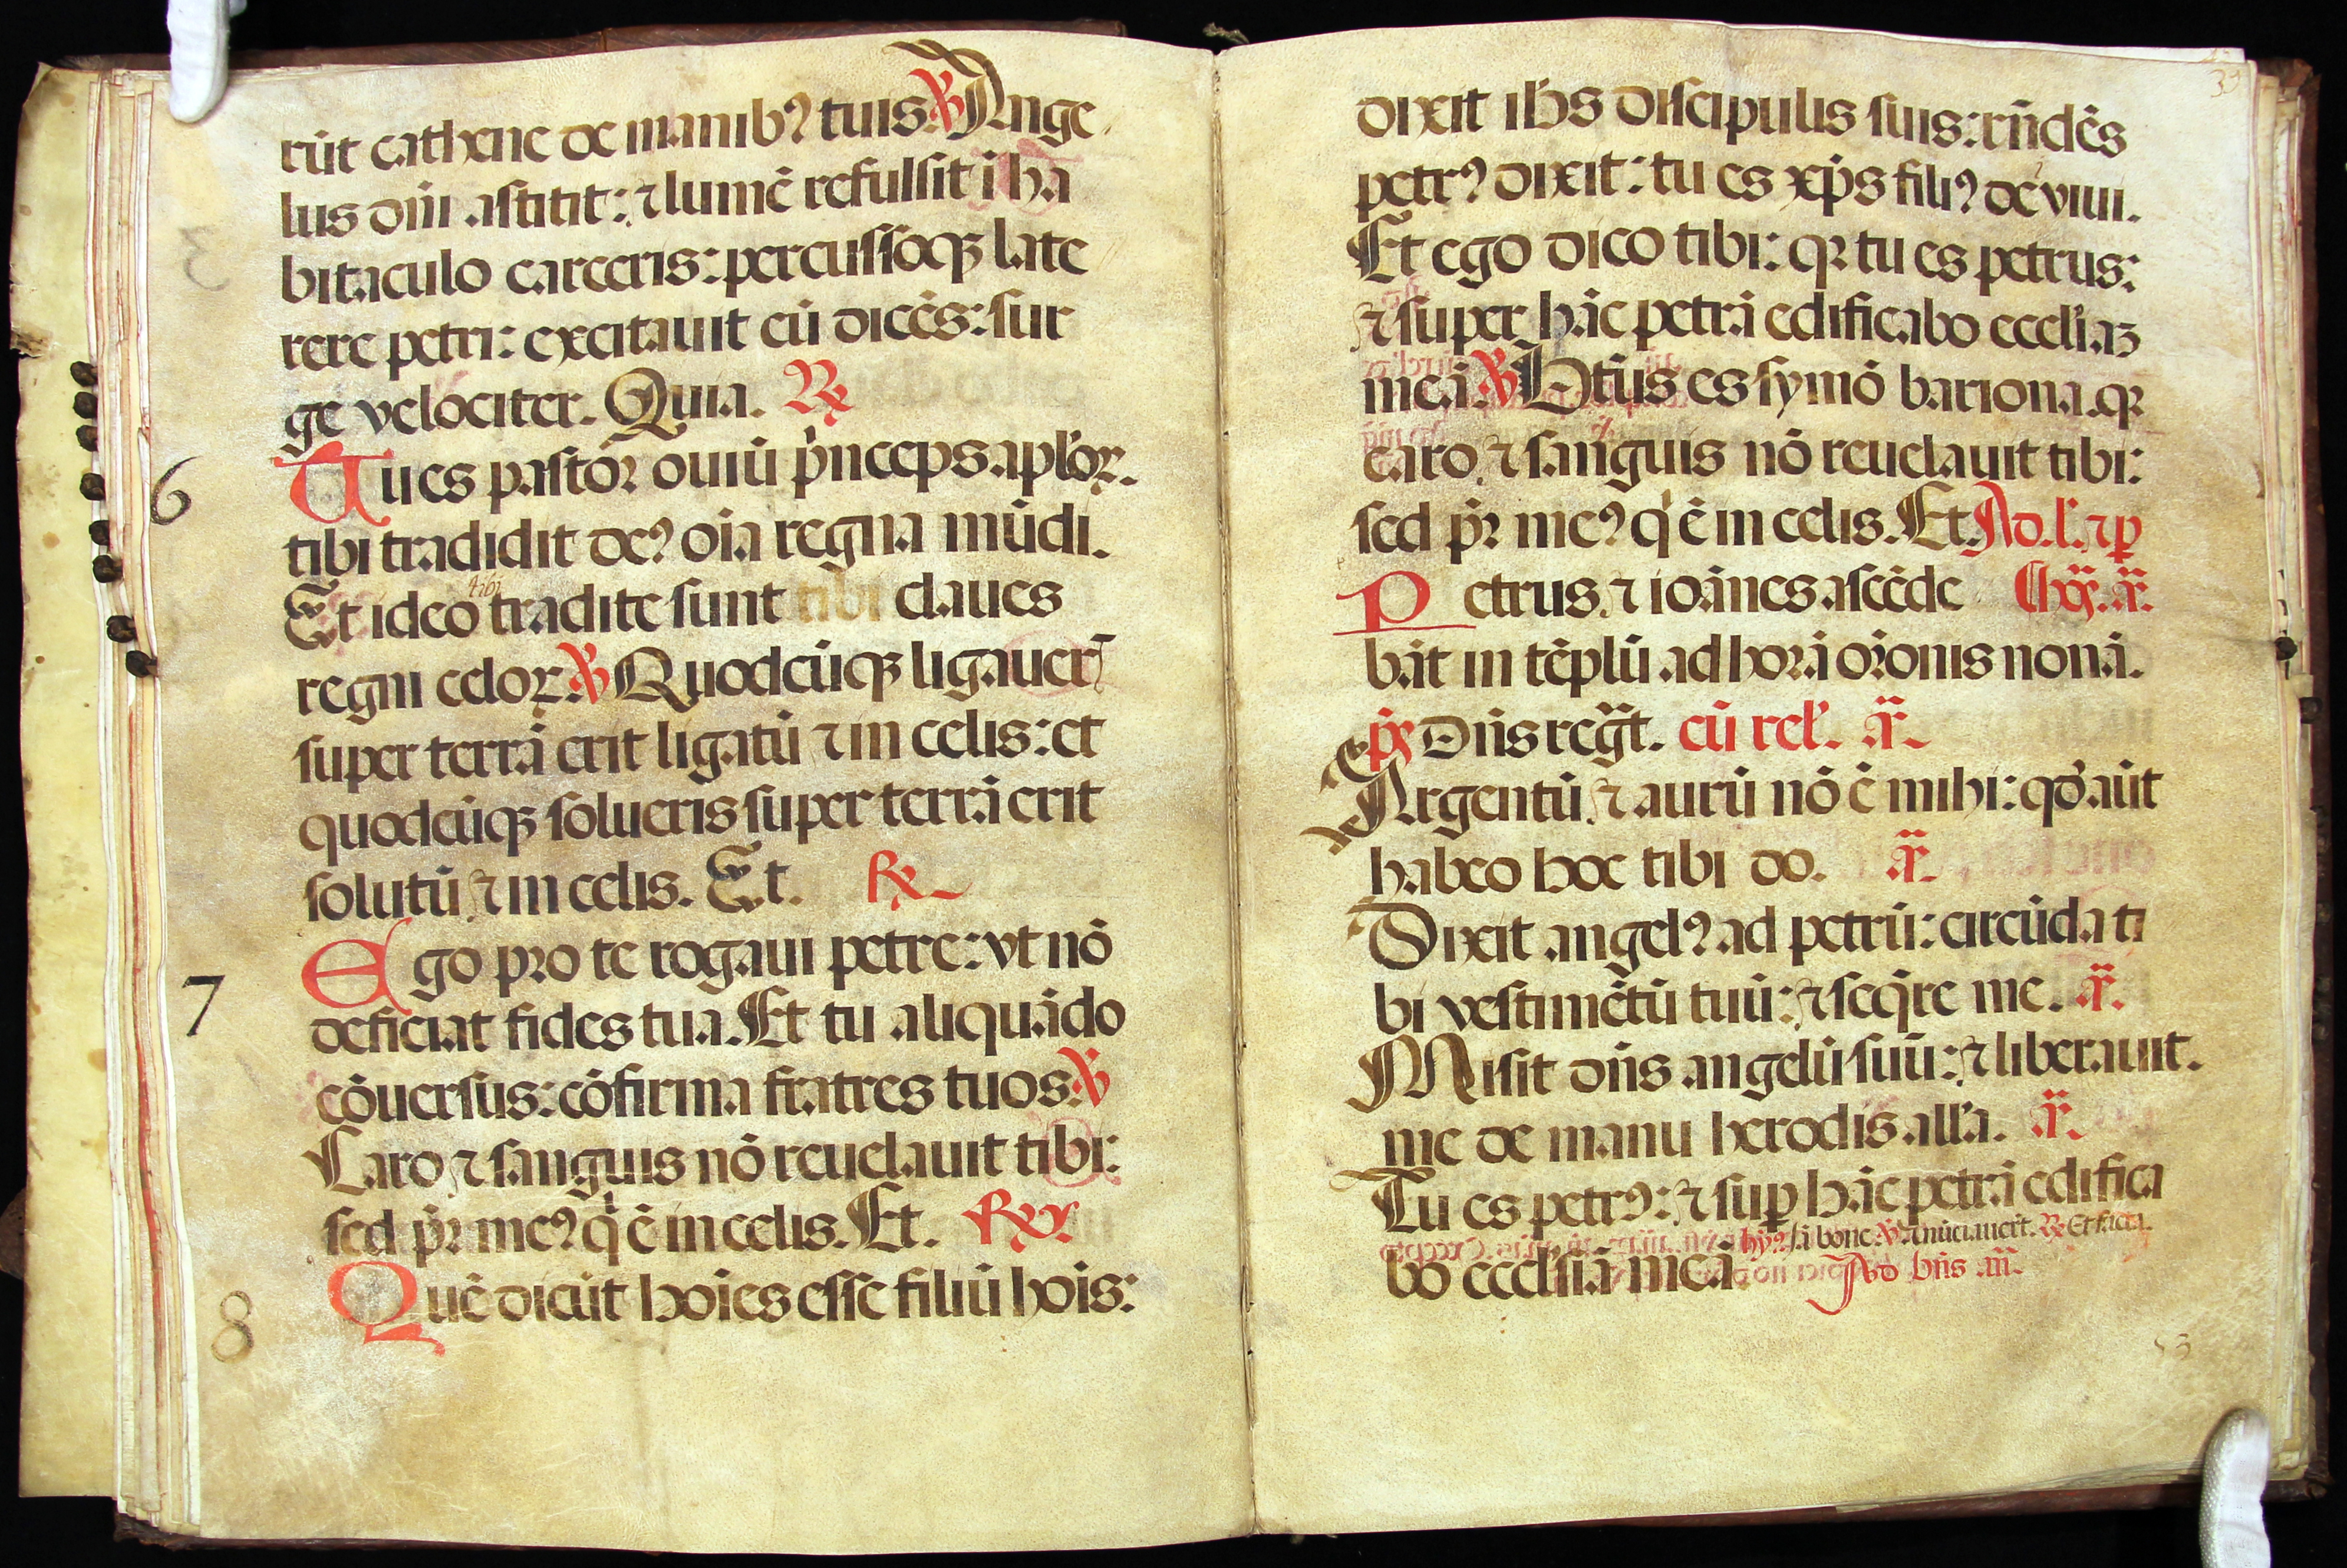 rūt cathene de manibꝰ tuis. ℣ Ange
lus dn̄i astitit: ⁊ lumē refulsit ī ha
bitaculo carceris: percussoqꝫ late
rere petri: excitauit eū dicēs: sur
ge velociter. Quia. ℟
6
Tu es pastoꝛ ouiū pͥnceps apl'oꝝ.
tibi tradidit deꝰ oīa regna mūdi.
tibi
Et ideo tradite sunt tibi claues
regni celoꝝ. ℣ Quodcūqꝫ ligauer̄
super terrā erit ligatū ⁊ in celis: et
quodcūqꝫ solueris super terrā erit
solutū ⁊ in celis. Et. ℟
7
Ego pro te rogaui petre: vt nō
deficiat fides tua. Et tu aliquādo
cōuersus: cōfirma fratres tuos. ℣
Caro ⁊ sanguis nō reuelauit tibi:
sed pr̄ meꝰ qͥ ē in celis. Et. ℟
8
Quē dicūt hoīes esse filiū hoīs:
dixit ih̄s discipulis suis: rn̄dēs
petrꝰ dixit: tu es xp̄s filiꝰ dē viui.
Et ego dico tibi: qꝛ tu es petrus:
⁊ super hāc petrā edificabo eccl'iaꝫ
meā. ℣ Btūs es symō bariona. qꝛ
caro ⁊ sanguis nō reuelauit tibi:
sed pr̄ meꝰ qͥ ē in celis. Et. Ad. l'. ⁊ ꝑ
Petrus ⁊ ioānes ascēde hoꝝ. an̄.
bāt in tēplū ad horā or̄onis nonā.
ps̄ Dn̄s regt̄. cū rel'. an̄.
Argentū ⁊ aurū nō ē mihi: qd̄ aūt
habeo hoc tibi do. an̄.
Dixit angelꝰ ad petrū: circūda ti
bi vestimētū tuū: ⁊ seqͥre me. an̄.
Misit dn̄s angelū suū: ⁊ liberauit.
me de manu herodis all'a. an̄.
Tu es petrꝰ: ⁊ suꝑ hāc petrā edifica
hyꝰ. Iā bone. ℣ Anūciauerūt. ℟ Et facta.
bo eccl'siā meā. Ad bn̄s an̄.